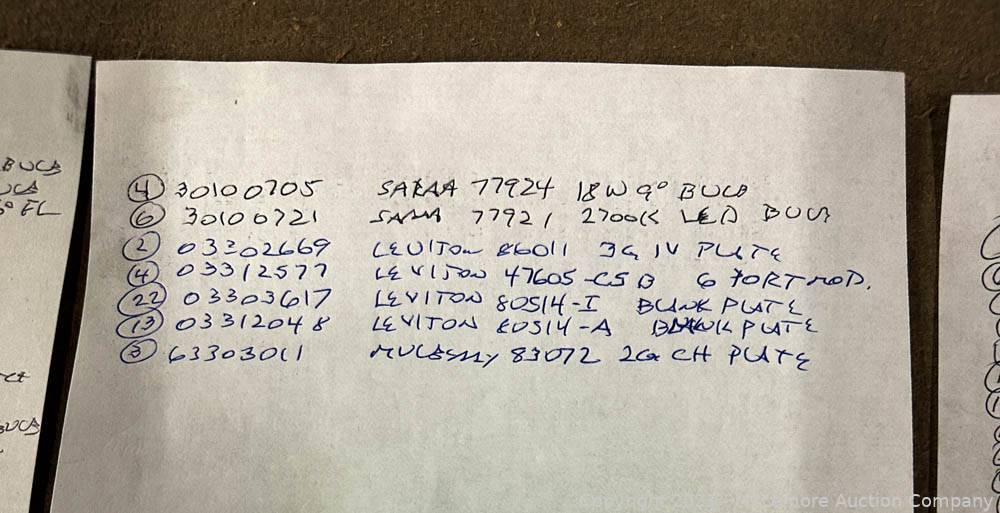 ④ 30100705 SARAA 77924 18W 9° BULB
⑥ 30100721 SARAA 77921 2700K LED BULB
② 03302669 LEVITON 86011 3G IV PLATE
④ 03312577 LEVITON 47605-C5B 6 PORT MOD.
㉒ 03303617 LEVITON 80514-I BLANK PLATE
⑬ 03312048 LEVITON 80514-A BLANK PLATE
③ 63303011 MULBERRY 83072 2G CH PLATE
BULB
BULB
EL
BULB
Auction Company